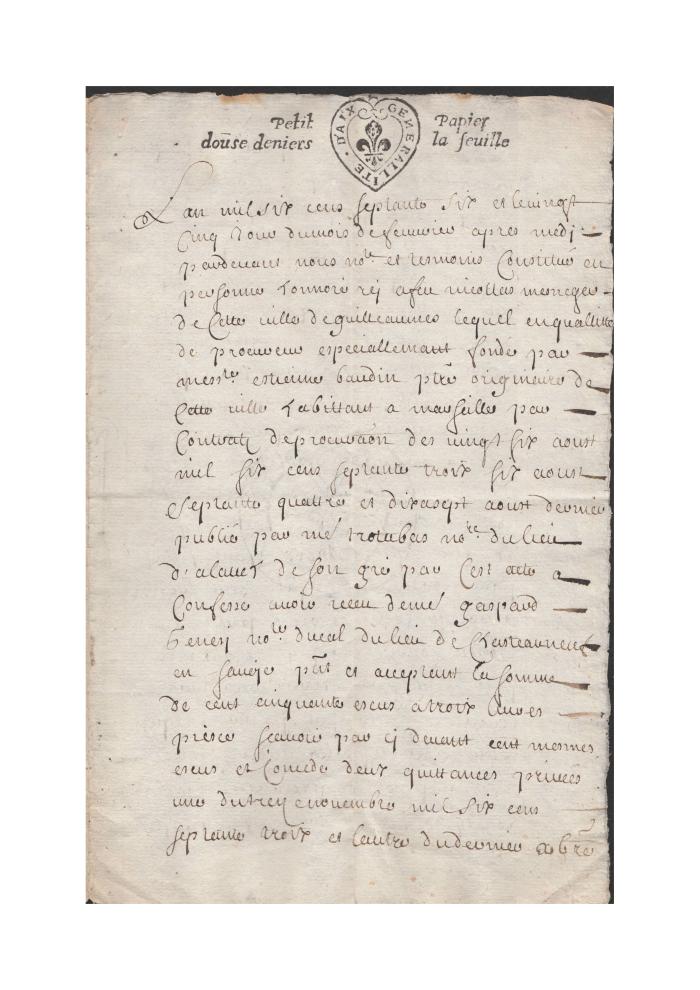 Petit Papier
douse deniers la feuille
GENERALLITE · D'AIX ·
Lan mil six cens septante six et le vingt
Cinq Jour du mois de feuvrier apres midj
pardevant nous nore et tesmoins Constitué en
personne honnoré rej a feu nicollas mesnager
de Cette ville de guilleaumes lequel en quallitte
de procureur especiallemant fondé par
messre estienne baudin ptre originaire de
Cette ville habittant a marseille par
Contratz de procuraon des vingt six aoust
mil six cens septante troix six aoust
septante quattre et dixasept aoust dernier
publié par me trotabas nore du lieu
d'alaues de son gré par Cest acte a
Confessé avoir receu de me gaspard
henrij nore ducal du lieu de Chasteauneuf
en savoye pnt et acceptant la somme
de cent cinquante escus a troix livres
piesce scavoir par cj devant cent mesmes
escus et Comede deux quittances privées
une du treze novembre mil six cens
septante troix et l'autre du dernier xbre